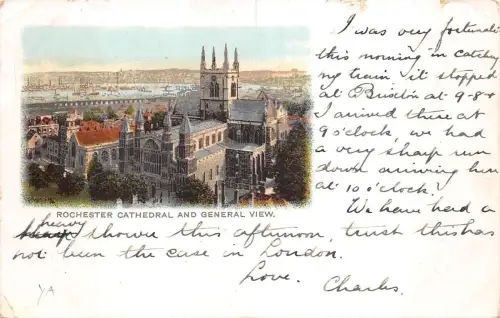 I was very fortunate
this morning in catch
ng train it stopped
at Brixton at 9-8 &
I arrived there at
9 o'clock, we had
a very sharp run
down arriving here
at 10 o'clock.
We have had a
ROCHESTER CATHEDRAL AND GENERAL VIEW.
heavy
shower this afternoon, trust this has
not been the case in London.
Love. Charles.
YA